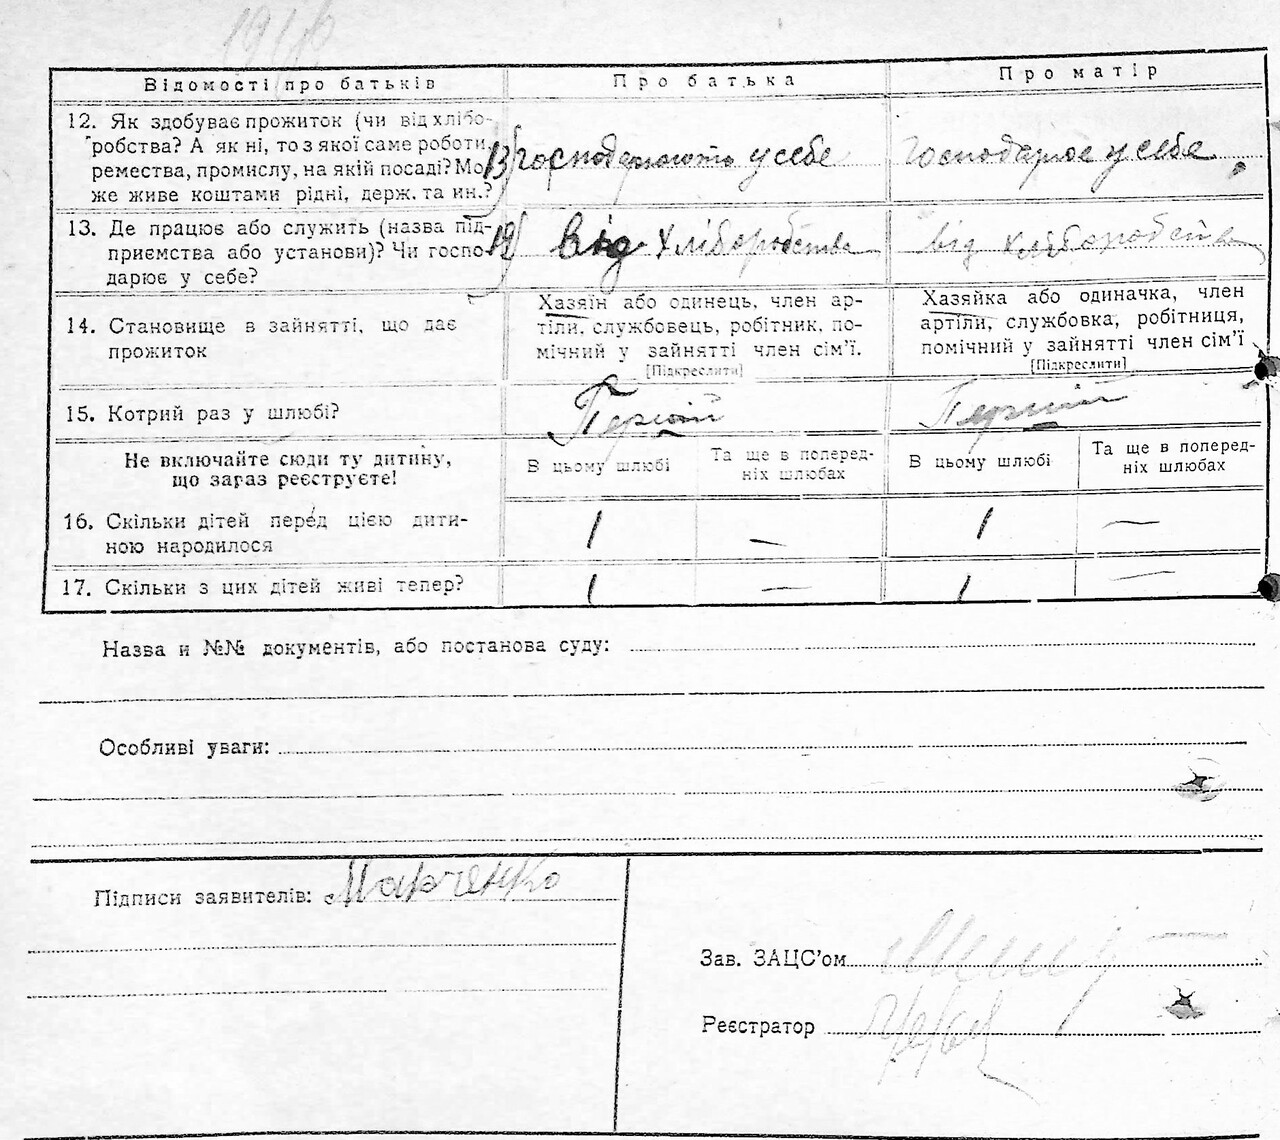 Відомості про батьків
Про батька
Про матір
12. Як здобуває прожиток (чи від хлібо-
робства? А як ні, то з якої саме роботи,
ремества, промислу, на якій посаді? Мо-
же живе коштами рідні, держ. та ин.?
13) господарюють у себе
Господарює у себе
13. Де працює або служить (назва під-
приємства або установи)? Чи госпо-
дарює у себе?
12) від хліборобства
від хліборобства
14. Становище в зайнятті, що дає
прожиток
Хазяїн або одинець, член ар-
тіли, службовець, робітник, по-
мічний у зайнятті член сім’ї.
[Підкреслити]
Хазяйка або одиначка, член
артіли, службовка, робітниця,
помічний у зайнятті член сім’ї
[Підкреслити]
15. Котрий раз у шлюбі?
Перший
Перший
Не включайте сюди ту дитину,
що зараз реєструєте!
В цьому шлюбі
Та ще в поперед-
ніх шлюбах
В цьому шлюбі
Та ще в поперед-
ніх шлюбах
16. Скільки дітей перед цією дити-
ною народилося
1
—
1
—
17. Скільки з цих дітей живі тепер?
1
—
1
—
Назва и №№ документів, або постанова суду:
Особливі уваги:
Підписи заявителів: Марченко
Зав. ЗАЦС’ом
Реєстратор